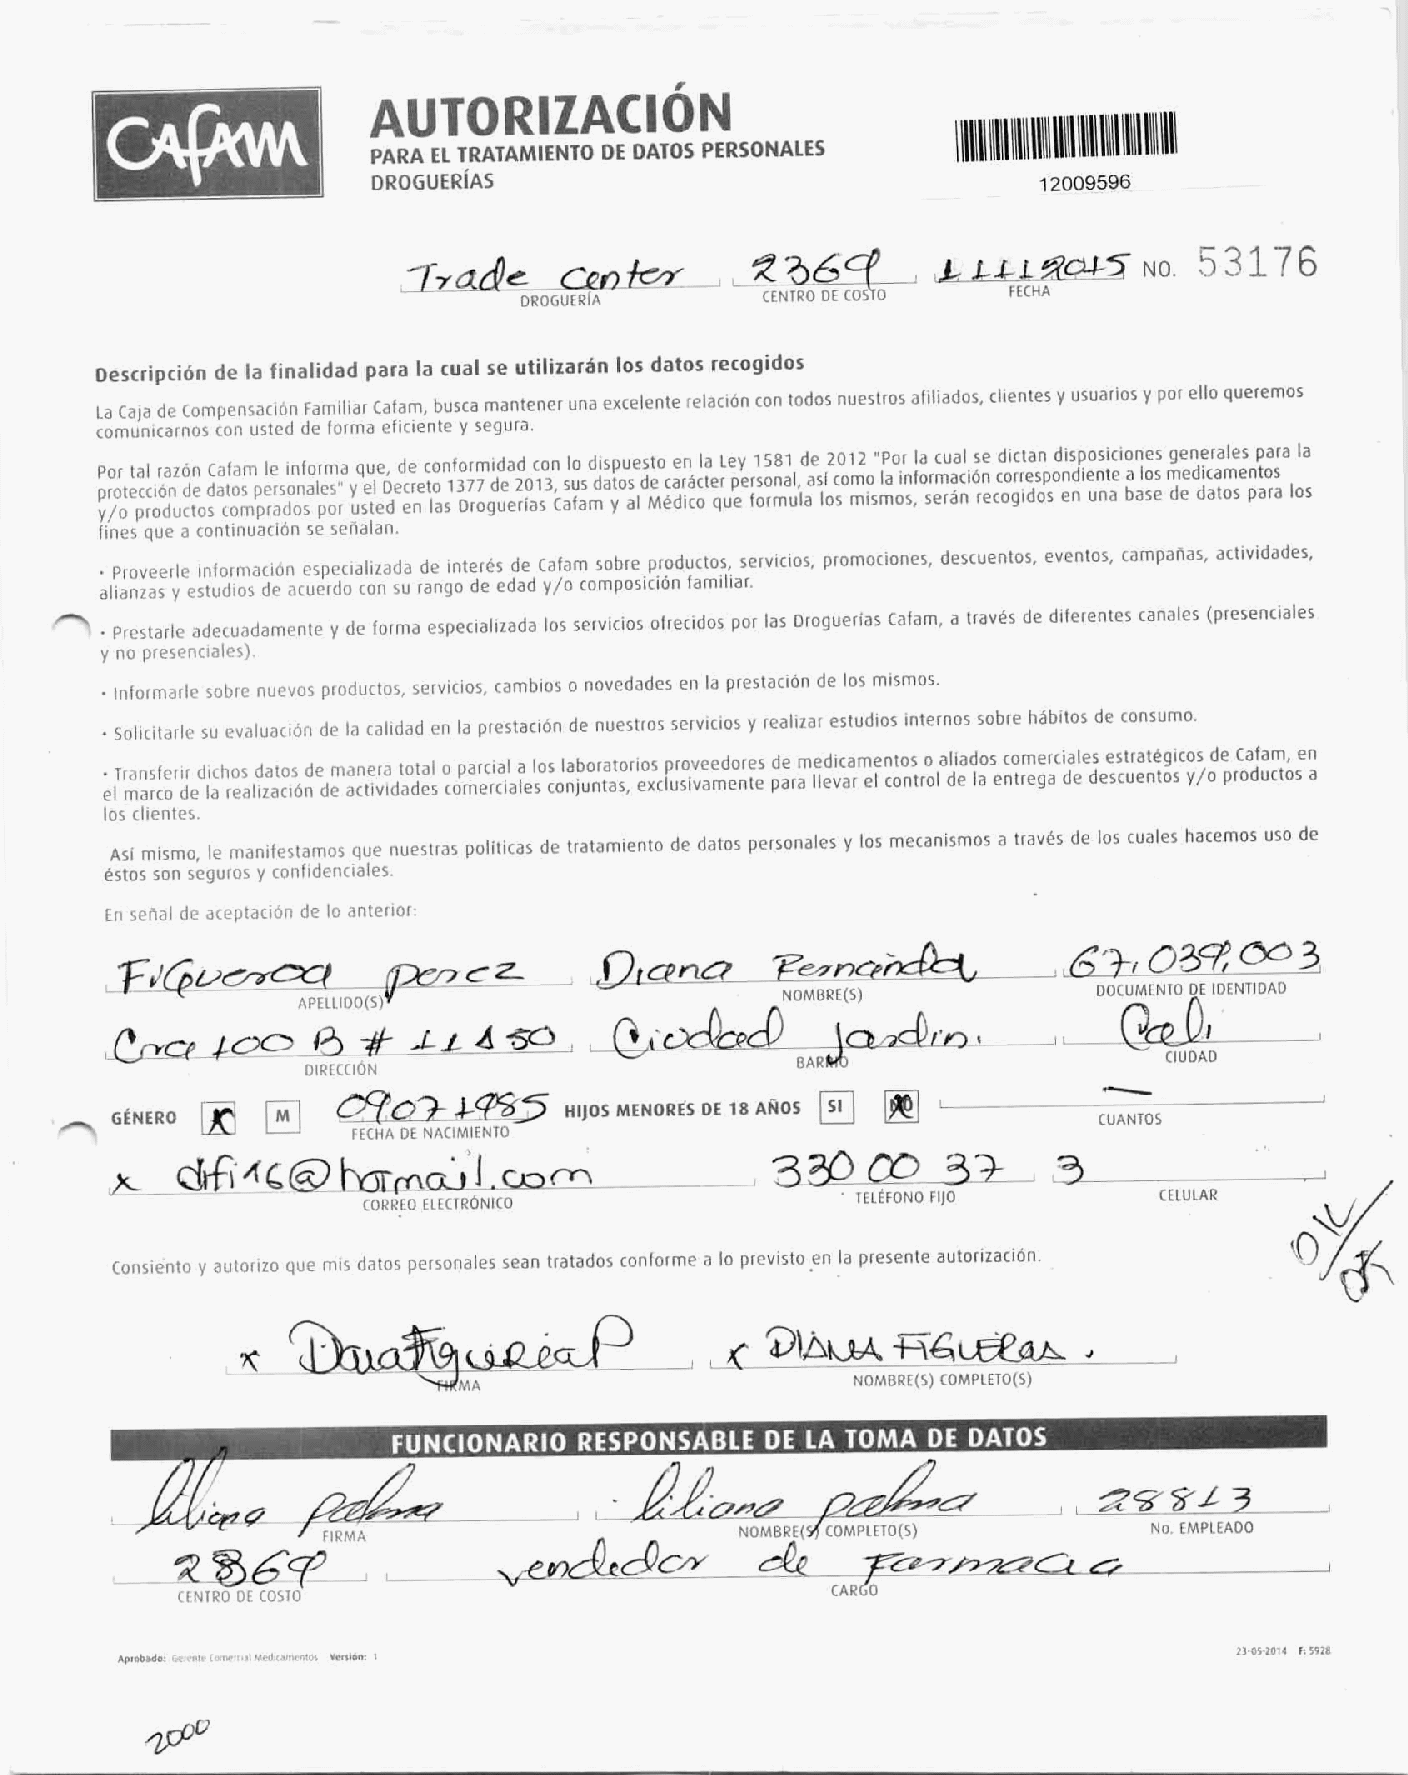 Cafam
AUTORIZACIÓN
PARA EL TRATAMIENTO DE DATOS PERSONALES
DROGUERÍAS
12009596
Trade Center 2369 11112015 NO. 53176
DROGUERÍA CENTRO DE COSTO FECHA
Descripción de la finalidad para la cual se utilizarán los datos recogidos
La Caja de Compensación Familiar Cafam, busca mantener una excelente relación con todos nuestros afiliados, clientes y usuarios y por ello queremos
comunicarnos con usted de forma eficiente y segura.
Por tal razón Cafam le informa que, de conformidad con lo dispuesto en la Ley 1581 de 2012 "Por la cual se dictan disposiciones generales para la
protección de datos personales" y el Decreto 1377 de 2013, sus datos de carácter personal, así como la información correspondiente a los medicamentos
y/o productos comprados por usted en las Droguerías Cafam y al Médico que formula los mismos, serán recogidos en una base de datos para los
fines que a continuación se señalan.
· Proveerle información especializada de interés de Cafam sobre productos, servicios, promociones, descuentos, eventos, campañas, actividades,
alianzas y estudios de acuerdo con su rango de edad y/o composición familiar.
· Prestarle adecuadamente y de forma especializada los servicios ofrecidos por las Droguerías Cafam, a través de diferentes canales (presenciales
y no presenciales).
· Informarle sobre nuevos productos, servicios, cambios o novedades en la prestación de los mismos.
· Solicitarle su evaluación de la calidad en la prestación de nuestros servicios y realizar estudios internos sobre hábitos de consumo.
· Transferir dichos datos de manera total o parcial a los laboratorios proveedores de medicamentos o aliados comerciales estratégicos de Cafam, en
el marco de la realización de actividades comerciales conjuntas, exclusivamente para llevar el control de la entrega de descuentos y/o productos a
los clientes.
Así mismo, le manifestamos que nuestras políticas de tratamiento de datos personales y los mecanismos a través de los cuales hacemos uso de
éstos son seguros y confidenciales.
En señal de aceptación de lo anterior:
Figueroa perez Diana Fernanda 67,039,003
APELLIDO(S) NOMBRE(S) DOCUMENTO DE IDENTIDAD
Cra 100 B # 11 150 Ciudad Jardin. Cali
DIRECCIÓN BARRIO CIUDAD
GÉNERO X M 09071985 HIJOS MENORES DE 18 AÑOS SI NO —
FECHA DE NACIMIENTO CUANTOS
x difi16@hotmail.com 330 00 37 3
CORREO ELECTRÓNICO TELÉFONO FIJO CELULAR
OK/OK
Consiento y autorizo que mis datos personales sean tratados conforme a lo previsto en la presente autorización.
x Diana Figueroa P x DIANA FIGUEROA.
FIRMA NOMBRE(S) COMPLETO(S)
FUNCIONARIO RESPONSABLE DE LA TOMA DE DATOS
liliana palma liliana palma 28813
FIRMA NOMBRE(S) COMPLETO(S) No. EMPLEADO
2369 vendedor de Farmacia
CENTRO DE COSTO CARGO
Aprobado: Gerente Comercial Medicamentos Versión: 1 23-05-2014 F: 5928
2000